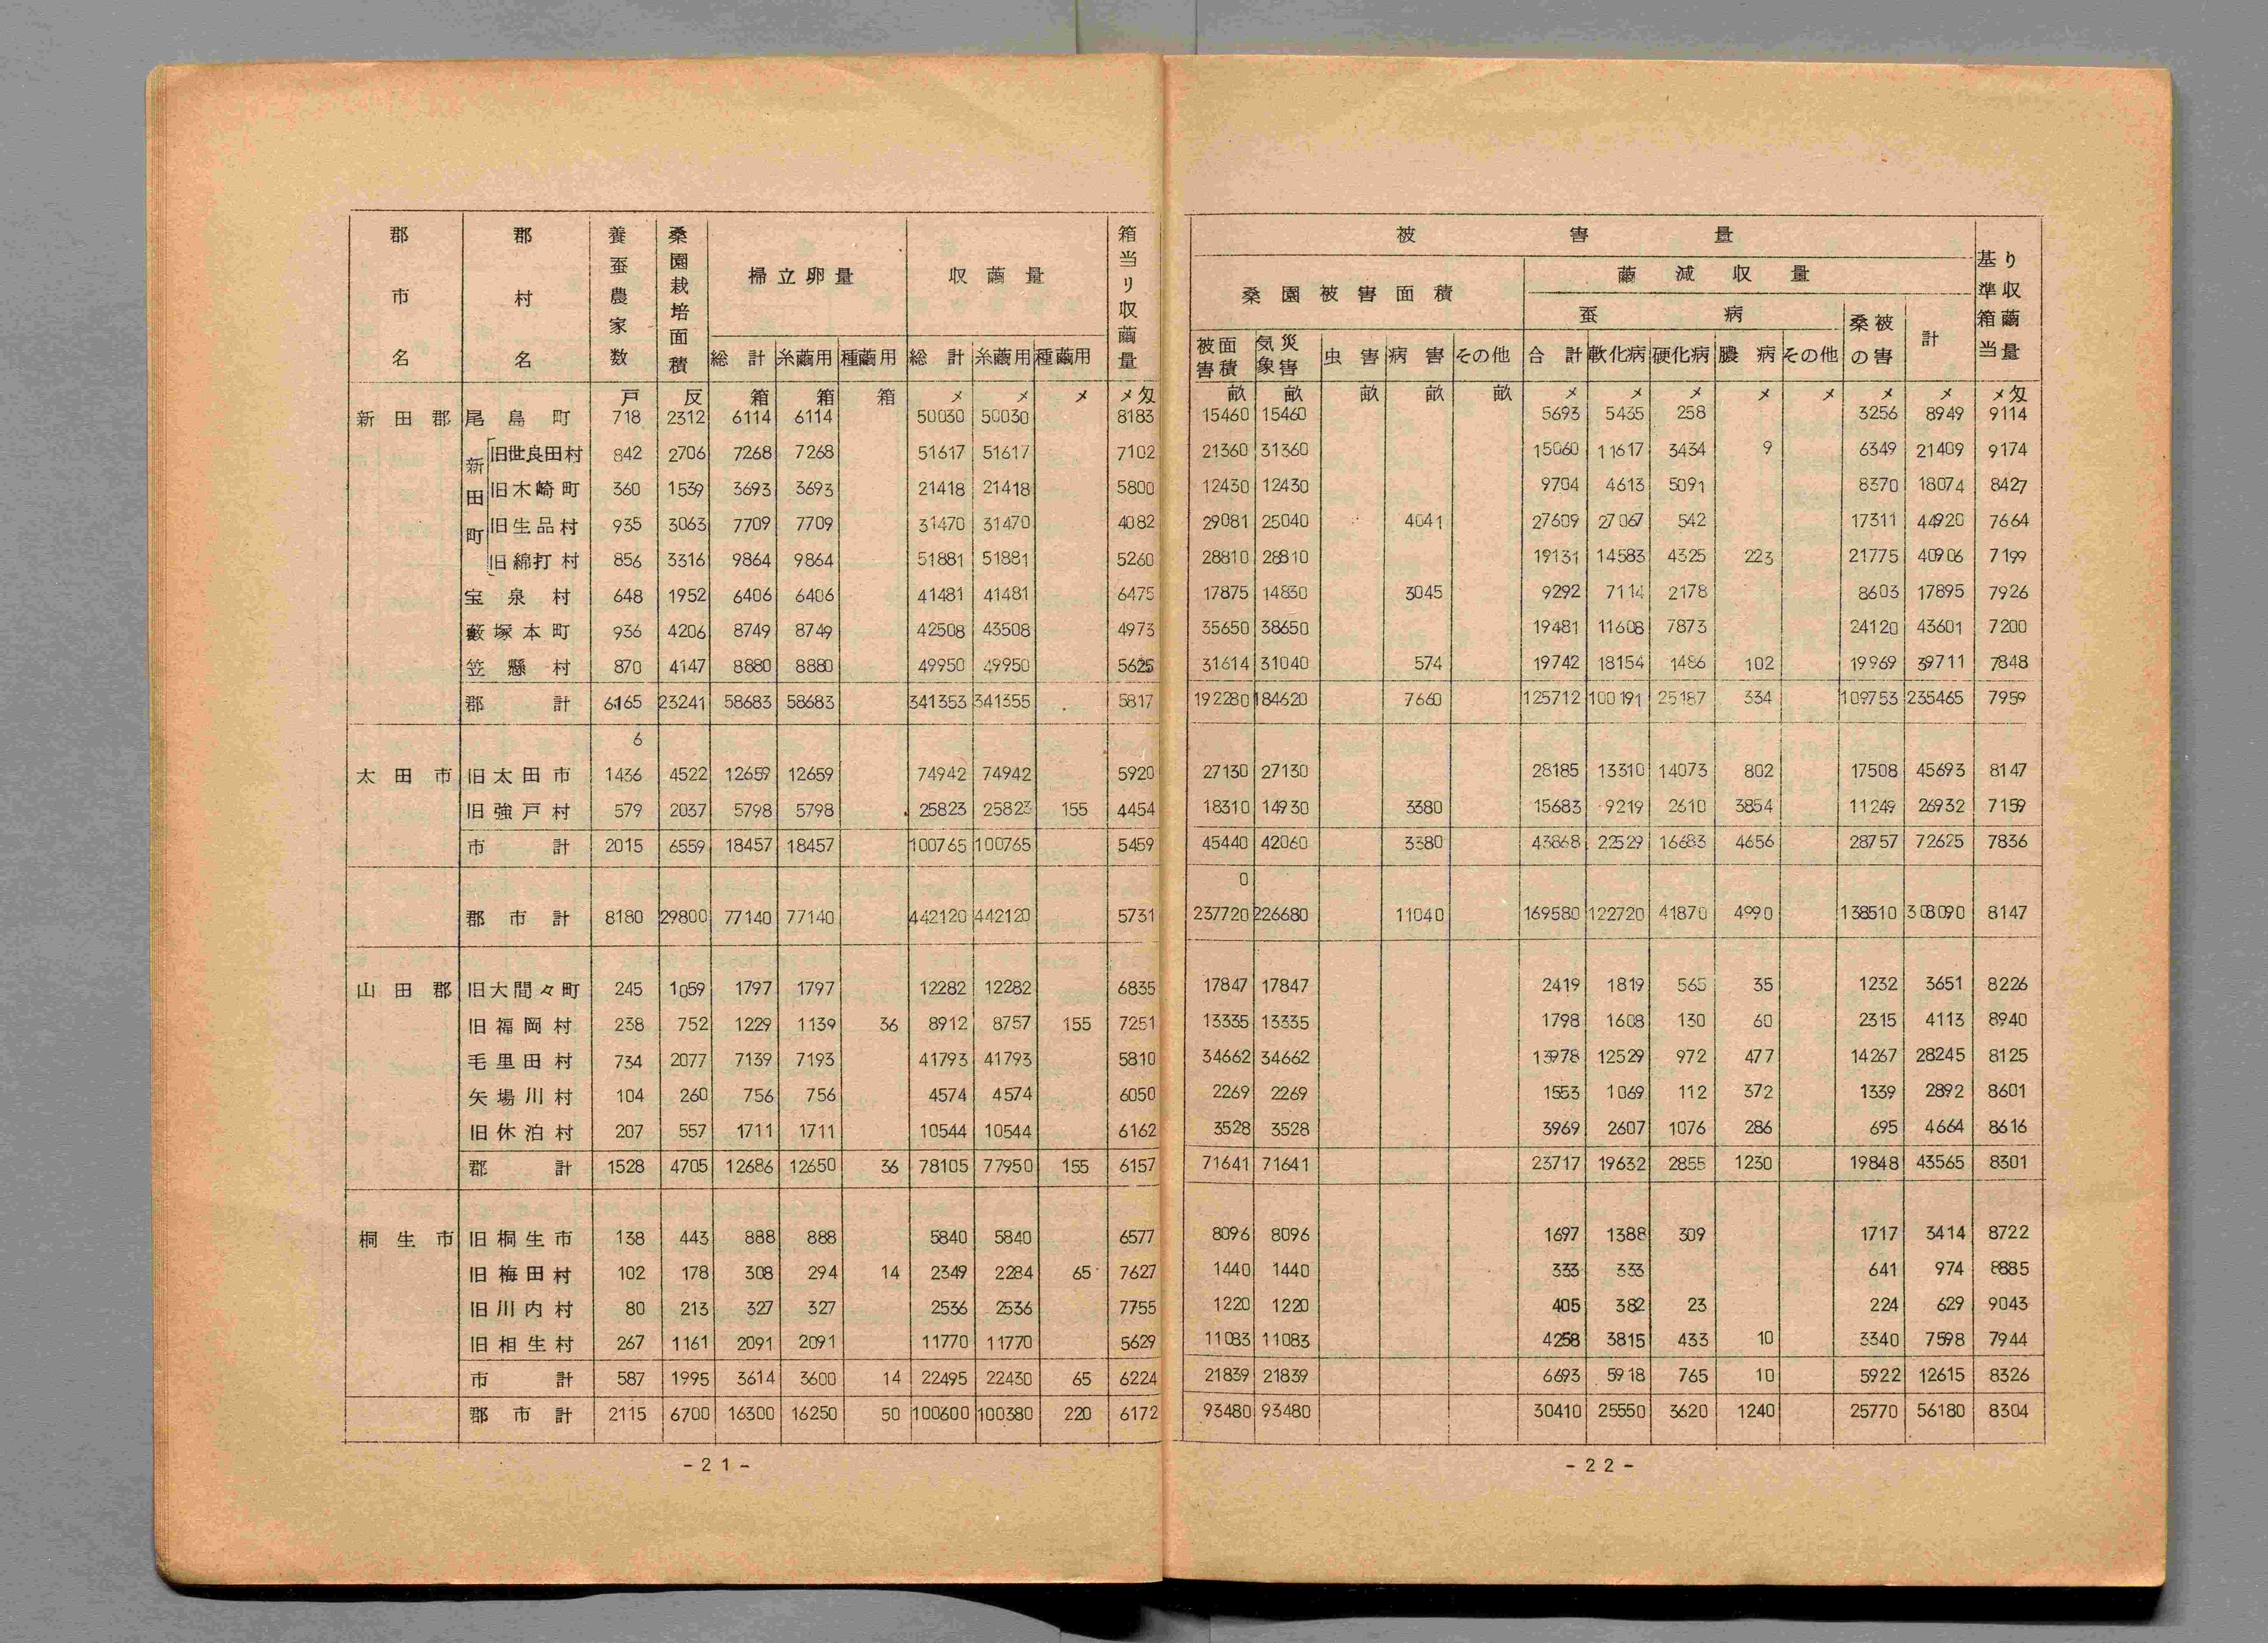 郡市名 郡村名 養蚕農家数 桑園栽培面積 掃立卵量 収繭量 箱当り収繭量
総計 糸繭用 種繭用 総計 糸繭用 種繭用
戸 反 箱 箱 箱 メ メ メ メ匁
新田郡 尾島町 718 2312 6114 6114 50030 50030 8183
新田町 旧世良田村 842 2706 7268 7268 51617 51617 7102
旧木崎町 360 1539 3693 3693 21418 21418 5800
旧生品村 935 3063 7709 7709 31470 31470 4082
旧綿打村 856 3316 9864 9864 51881 51881 5260
宝泉村 648 1952 6406 6406 41481 41481 6475
藪塚本町 936 4206 8749 8749 42508 43508 4973
笠懸村 870 4147 8880 8880 49950 49950 5625
郡計 6165 23241 58683 58683 341353 341355 5817
6
太田市 旧太田市 1436 4522 12659 12659 74942 74942 5920
旧強戸村 579 2037 5798 5798 25823 25823 155 4454
市計 2015 6559 18457 18457 100765 100765 5459
郡市計 8180 29800 77140 77140 442120 442120 5731
山田郡 旧大間々町 245 1059 1797 1797 12282 12282 6835
旧福岡村 238 752 1229 1139 36 8912 8757 155 7251
毛里田村 734 2077 7139 7193 41793 41793 5810
矢場川村 104 260 756 756 4574 4574 6050
旧休泊村 207 557 1711 1711 10544 10544 6162
郡計 1528 4705 12686 12650 36 78105 77950 155 6157
桐生市 旧桐生市 138 443 888 888 5840 5840 6577
旧梅田村 102 178 308 294 14 2349 2284 65 7627
旧川内村 80 213 327 327 2536 2536 7755
旧相生村 267 1161 2091 2091 11770 11770 5629
市計 587 1995 3614 3600 14 22495 22430 65 6224
郡市計 2115 6700 16300 16250 50 100600 100380 220 6172
-21-
被害量 基準箱当り収繭量
桑園被害面積 繭減収量
蚕病 桑の被害 計
被害面積 気象災害 虫害 病害 その他 合計 軟化病 硬化病 膿病 その他
畝 畝 畝 畝 畝 メ メ メ メ メ メ メ メ匁
15460 15460 5693 5435 258 3256 8949 9114
21360 31360 15060 11617 3434 9 6349 21409 9174
12430 12430 9704 4613 5091 8370 18074 8427
29081 25040 4041 27609 27067 542 17311 44920 7664
28810 28810 19131 14583 4325 223 21775 40906 7199
17875 14830 3045 9292 7114 2178 8603 17895 7926
35650 38650 19481 11608 7873 24120 43601 7200
31614 31040 574 19742 18154 1486 102 19969 39711 7848
192280 184620 7660 125712 100191 25187 334 109753 235465 7959
27130 27130 28185 13310 14073 802 17508 45693 8147
18310 14930 3380 15683 9219 2610 3854 11249 26932 7159
45440 42060 3380 43868 22529 16683 4656 28757 72625 7836
0
237720 226680 11040 169580 122720 41870 4990 138510 308090 8147
17847 17847 2419 1819 565 35 1232 3651 8226
13335 13335 1798 1608 130 60 2315 4113 8940
34662 34662 13978 12529 972 477 14267 28245 8125
2269 2269 1553 1069 112 372 1339 2892 8601
3528 3528 3969 2607 1076 286 695 4664 8616
71641 71641 23717 19632 2855 1230 19848 43565 8301
8096 8096 1697 1388 309 1717 3414 8722
1440 1440 333 333 641 974 8885
1220 1220 405 382 23 224 629 9043
11083 11083 4258 3815 433 10 3340 7598 7944
21839 21839 6693 5918 765 10 5922 12615 8326
93480 93480 30410 25550 3620 1240 25770 56180 8304
-22-